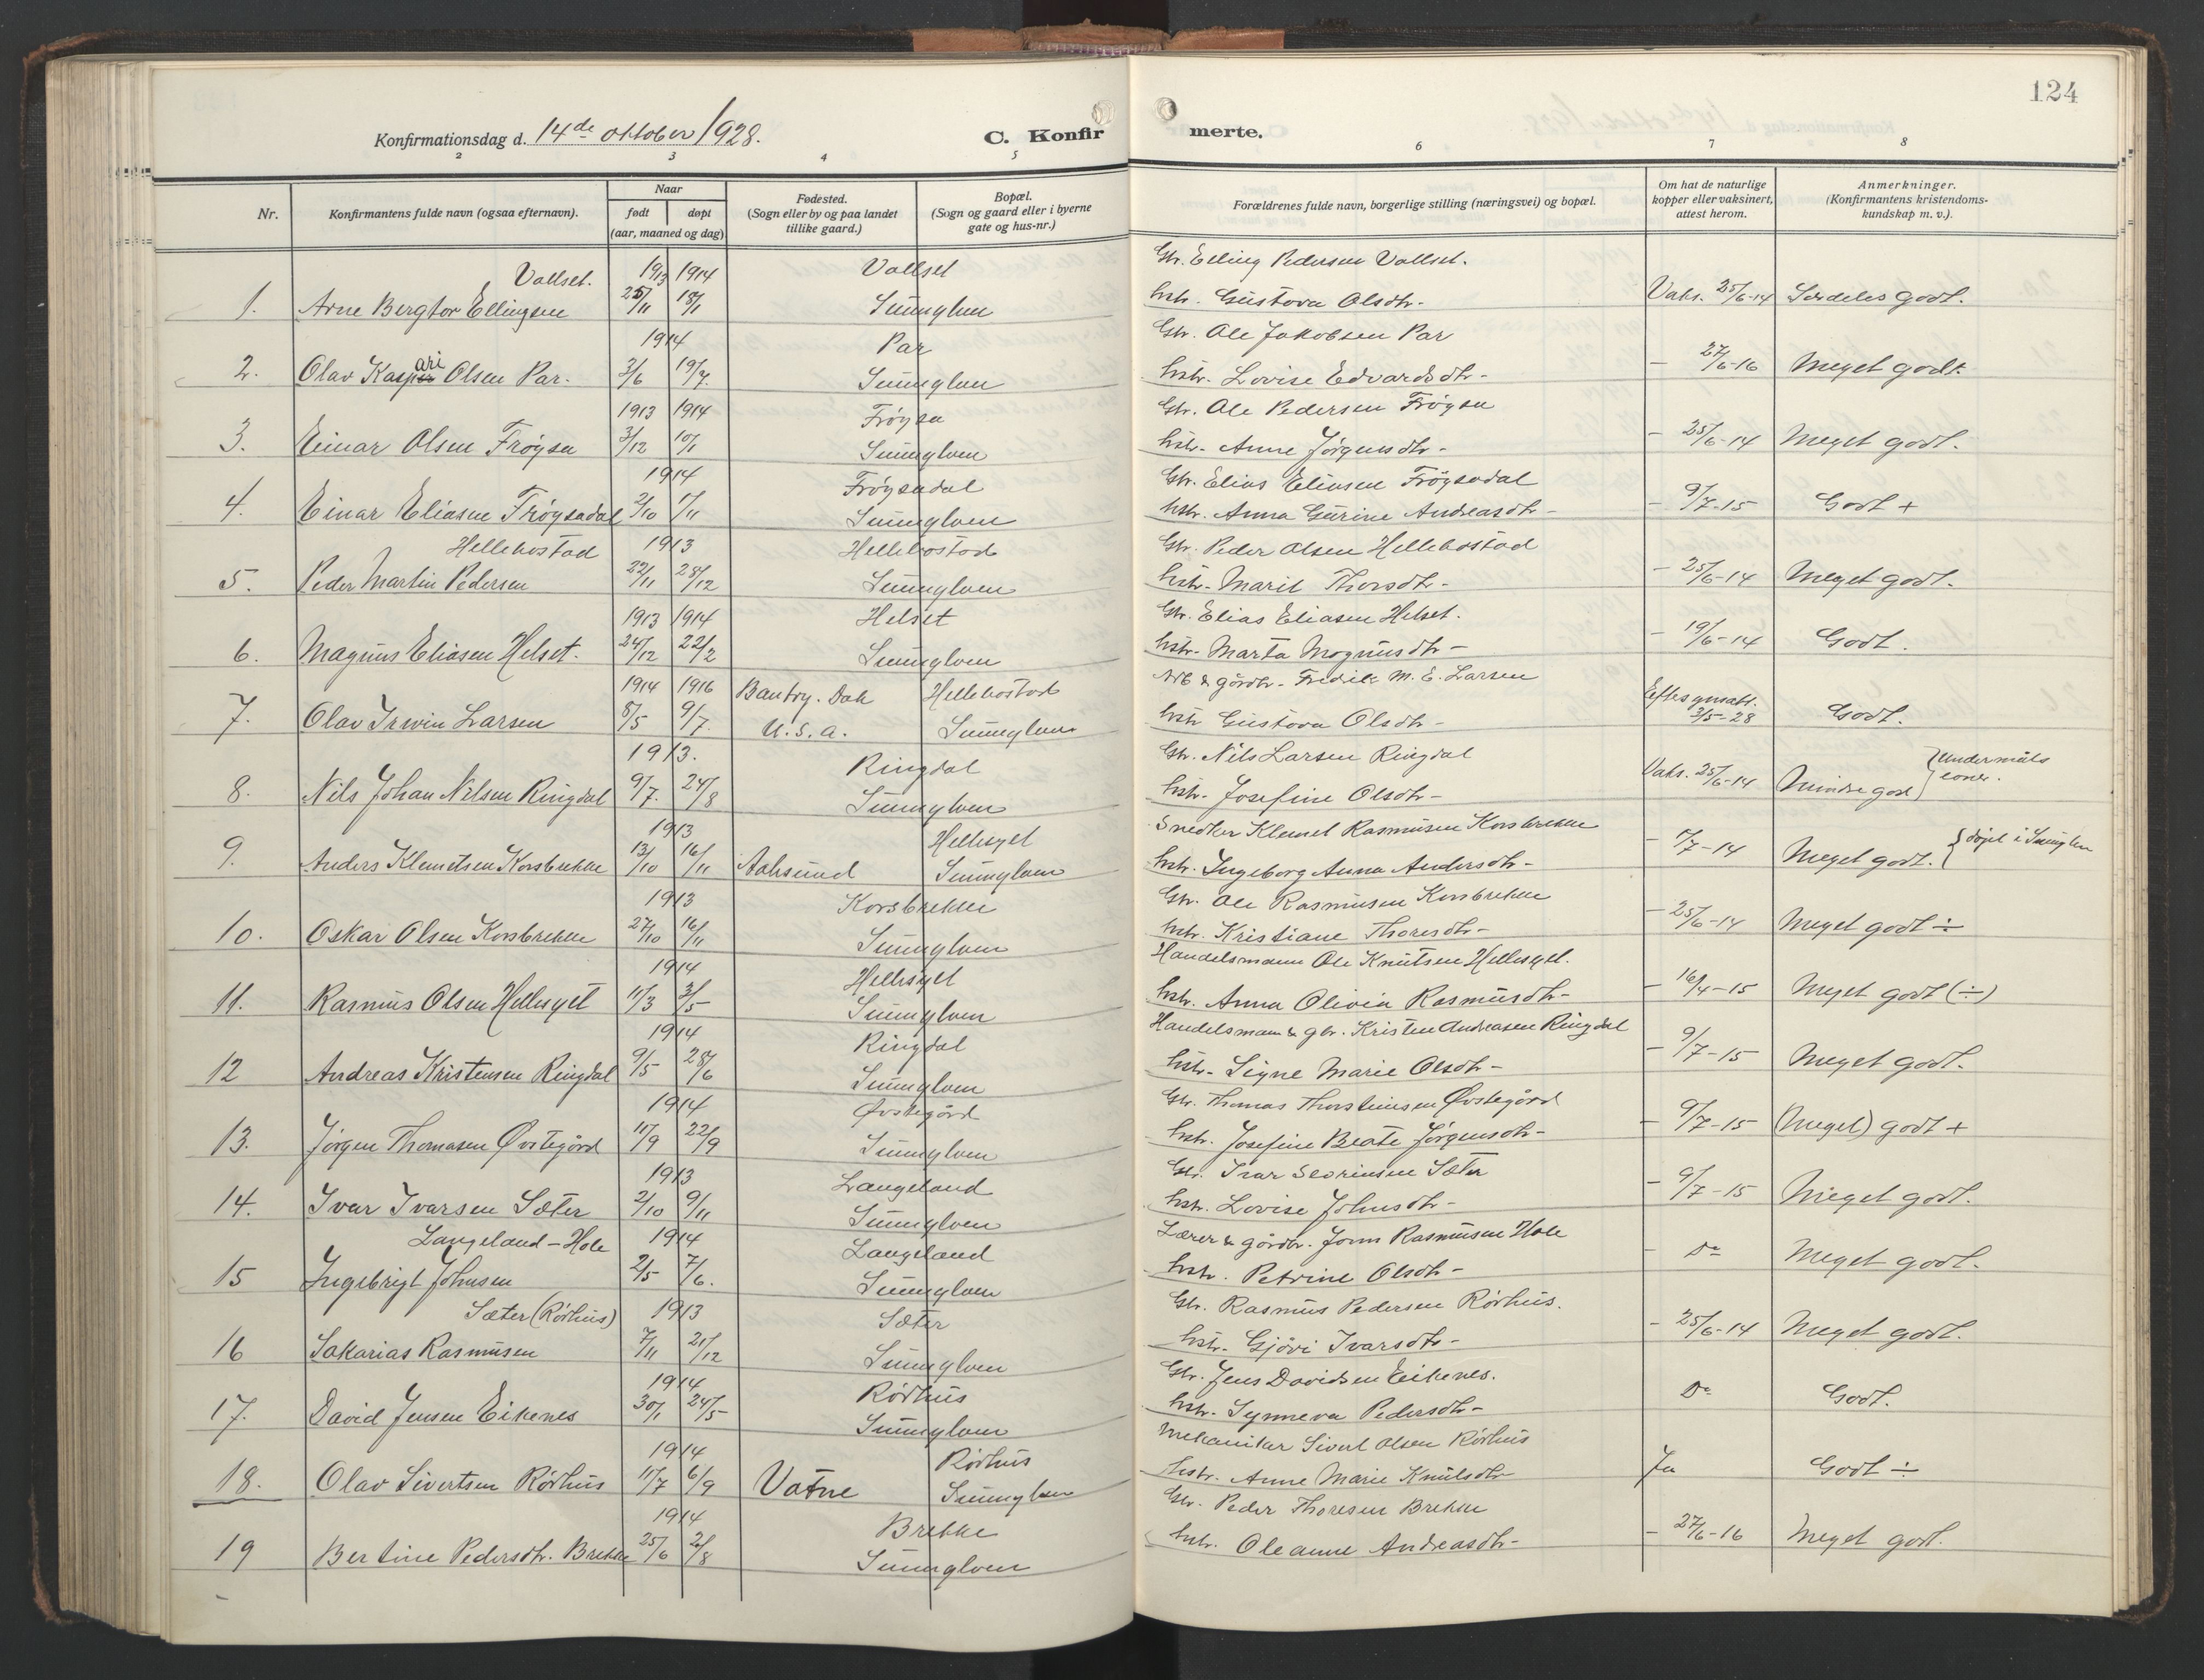 124
Konfirmationsdag d. 14de oktober 1928.
C. Konfirmerte.
2 3 4 5 6 7 8
Nr.
Konfirmantens fulde navn (ogsaa efternavn).
Naar
født døpt
(aar, maaned og dag)
Fødested.
(Sogn eller by og paa landet
tillike gaard.)
Bopæl.
(Sogn og gaard eller i byerne
gate og hus-nr.)
Forældrenes fulde navn, borgerlige stilling (næringsvei) og bopæl.
Om hat de naturlige
kopper eller vaksinert,
attest herom.
Anmerkninger.
(Konfirmantens kristendoms-
kundskap m. v.).
Vallset. 1913 1914 Vallset Gbr. Elling Pedersen Vallset.
1. Arne Bergtor Ellingsen 25/11 18/1 Sunnylven hstr. Gustova Olsdtr. Vaks. 25/6-14 Særdeles godt.
1914 Par Gbr. Ole Jakobsen Par
2. Olav Kaspari Olsen Par. 3/6 19/7. Sunnylven hstr. Lovise Edvardsdtr - – 27/6-16 Meget godt.
1913 1914 Frøysa Gbr. Ole Pedersen Frøysa
3. Einar Olsen Frøysa 3/12 10/1 Sunnylven hstr. Anne Jørgensdtr - – 25/6-14 Meget godt.
1914 Frøysadal Gbr. Elias Eliasen Frøysadal
4. Einar Eliasen Frøysadal 2/10 1/11 Sunnylven hstr. Anna Gurine Andreasdtr - – 9/7-15 Godt +
Hellebostad 1913 Hellebostad Gbr. Peder Olsen Hellebostad
5. Peder Martin Pedersen 22/11 28/12 Sunnylven hstr. Marit Thorsdtr - – 25/6-14 Meget godt.
1913 1914 Helset Gbr. Elias Eliasen Helset.
6. Magnus Eliasen Helset. 24/12 22/2 Sunnylven hstr. Marta Magnusdtr - – 19/6-14 Godt.
1914 1916 Bantry. Dak Hellebostad Arb & gårdbr. Fredik M. E. Larsen
7. Olav Irwin Larsen 8/5 9/7. U.S.a. Sunnylven hstr Gustova Olsdtr - 3/5-28 Godt.
1913. Ringdal Gbr. Nils Larsen Ringdal
8. Nils Johan Nilsen Ringdal 9/7. 24/8 Sunnylven hstr. Josefine Olsdtr - Vaks. 25/6-14 Mindre godt
1913 Hellesylt Snedker Klemet Rasmusen Korsbrekke
9. Anders Klemetsen Korsbrekke 13/10 16/11 Aalesund Sunnylven hstr. Ingeborg Anna Andersdtr - – 1/7-14 Meget godt. } døpt i Sunnylven
1913 Korsbrekke Gbr. Ole Rasmusen Korsbrekke
10. Oskar Olsen Korsbrekke 27/10 16/11 Sunnylven hstr. Kristiane Thoresdtr - – 25/6-14 Meget godt ÷
1914 Hellesylt Handelsmann Ole Knutsen Hellesylt.
11. Rasmus Olsen Hellesylt 11/3 3/5 Sunnylven hstr. Anna Olivia Rasmusdtr - – 16/4-15 Meget godt (÷)
1914 Ringdal Handelsmann & gbr. Kristen Andreasen Ringdal
12 Andreas Kristensen Ringdal 9/5 28/6 Sunnylven hstr. Signe Marie Olsdtr - – 9/7-15 Meget godt.
1914 Øvstegård Gbr. Thomas Thorsteinsen Øvstegård
13. Jørgen Thomasen Øvstegård 11/9 22/9 Sunnylven hstr. Josefine Beate Jørgensdtr - – 9/7-15 (Meget) godt +
1913 Langeland Gbr. Ivar Severinsen Sæter
14. Ivar Ivarsen Sæter 2/10 9/11 Sunnylven hstr. Lovise Johnsdtr - – 9/7-15 Meget godt.
Langeland-Hole 1914 Langeland Lærer & gårdbr. Jonn Rasmusen Hole
15 Ingebrigt Johnsen 2/5 7/6. Sunnylven hstr. Petrine Olsdtr - – Do Meget godt.
Sæter (Rørhus) 1913 Sæter Gbr. Rasmus Pedersen Rørhus.
16 Sakarias Rasmusen 7/11 21/12 Sunnylven hstr. Gjøri Ivarsdtr - – 25/6-14 Meget godt.
1914 Rørhus Gbr. Jens Davidsen Eikenes.
17. David Jensen Eikenes 30/1 24/5 Sunnylven hstr. Synneva Pedersdtr - Do Godt.
1914 Rørhus Mekaniker Sivert Olsen Rørhus
18. Olav Sivertsen Rørhus 11/7 6/9 Vatne Sunnylven hstr. Anne Marie Knutsdtr Ja Godt ÷
1914 Brekke Gbr. Peder Thoresen Brekke
19 Bertine Pedersdtr. Brekke 25/6 2/8 Sunnylven hstr. Oleanne Andreasdtr - – 27/6-16 Meget godt.